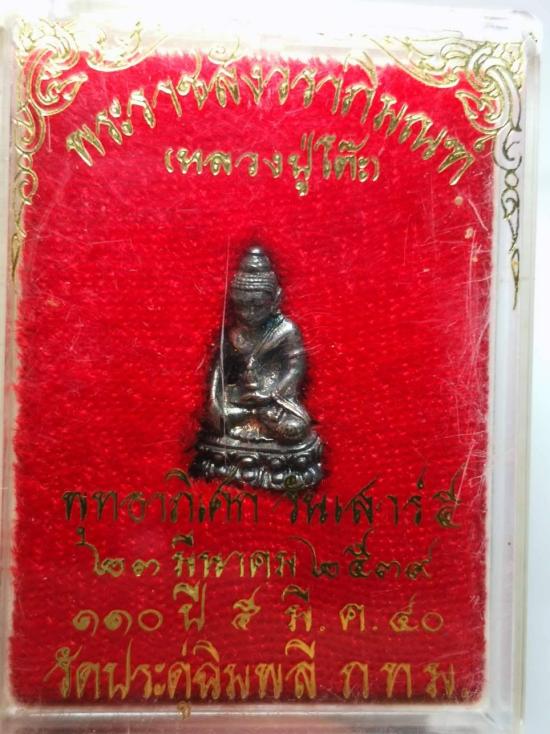 พระราชสังวราภิมณฑ์
(หลวงปู่โต๊ะ)
พุทธาภิเศก วันเสาร์ ๕
๒๓ มีนาคม ๒๕๓๙
๑๑๐ ปี ๕ มี.ค.๔๐
วัดประดู่ฉิมพลี กทม